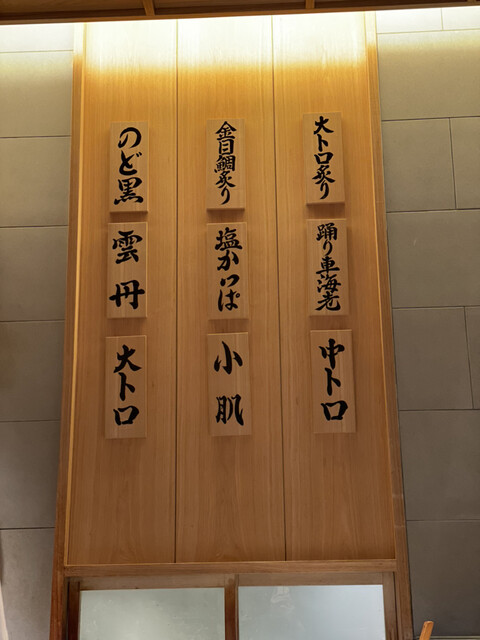 大トロ炙り
踊り車海老
中トロ
金目鯛炙り
塩かっぱ
小肌
のど黒
雲丹
大トロ